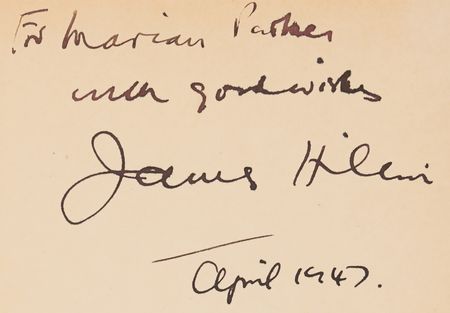 For Marian Parker
with good wishes
James Hilton
April 1947.